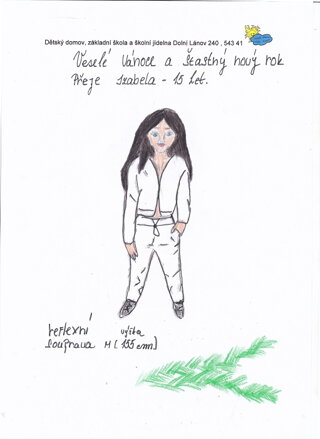 Dětský domov, základní škola a školní jídelna Dolní Lánov 240 , 543 41
Veselé Vánoce a Šťastný nový rok
Přeje Izabela - 15 let.
reflexní výška
souprava M (155 cm)